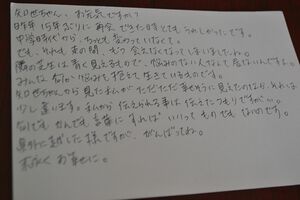 知世ちゃん、お元気ですか?
昨年15年ぶりに再会できた時とてもうれしかったです。
中学時代から、ちっとも変わっていなくて。
でも、それも束の間、もう会えなくなってしまいましたね。
隣の芝生は青く見えるもので、悩みのない人なんて居ないんですよね。
みんな何か悩みを抱えて生きているものです。
知世ちゃんから見た私がただただ幸せそうに見えたのなら、それは
少し違います。私から伝えられる事は伝えたつもりですが…。
何でもかんでも言葉にすればいいってものでもないのです。
県外に越した様ですが、がんばってね。
末永くお幸せに。